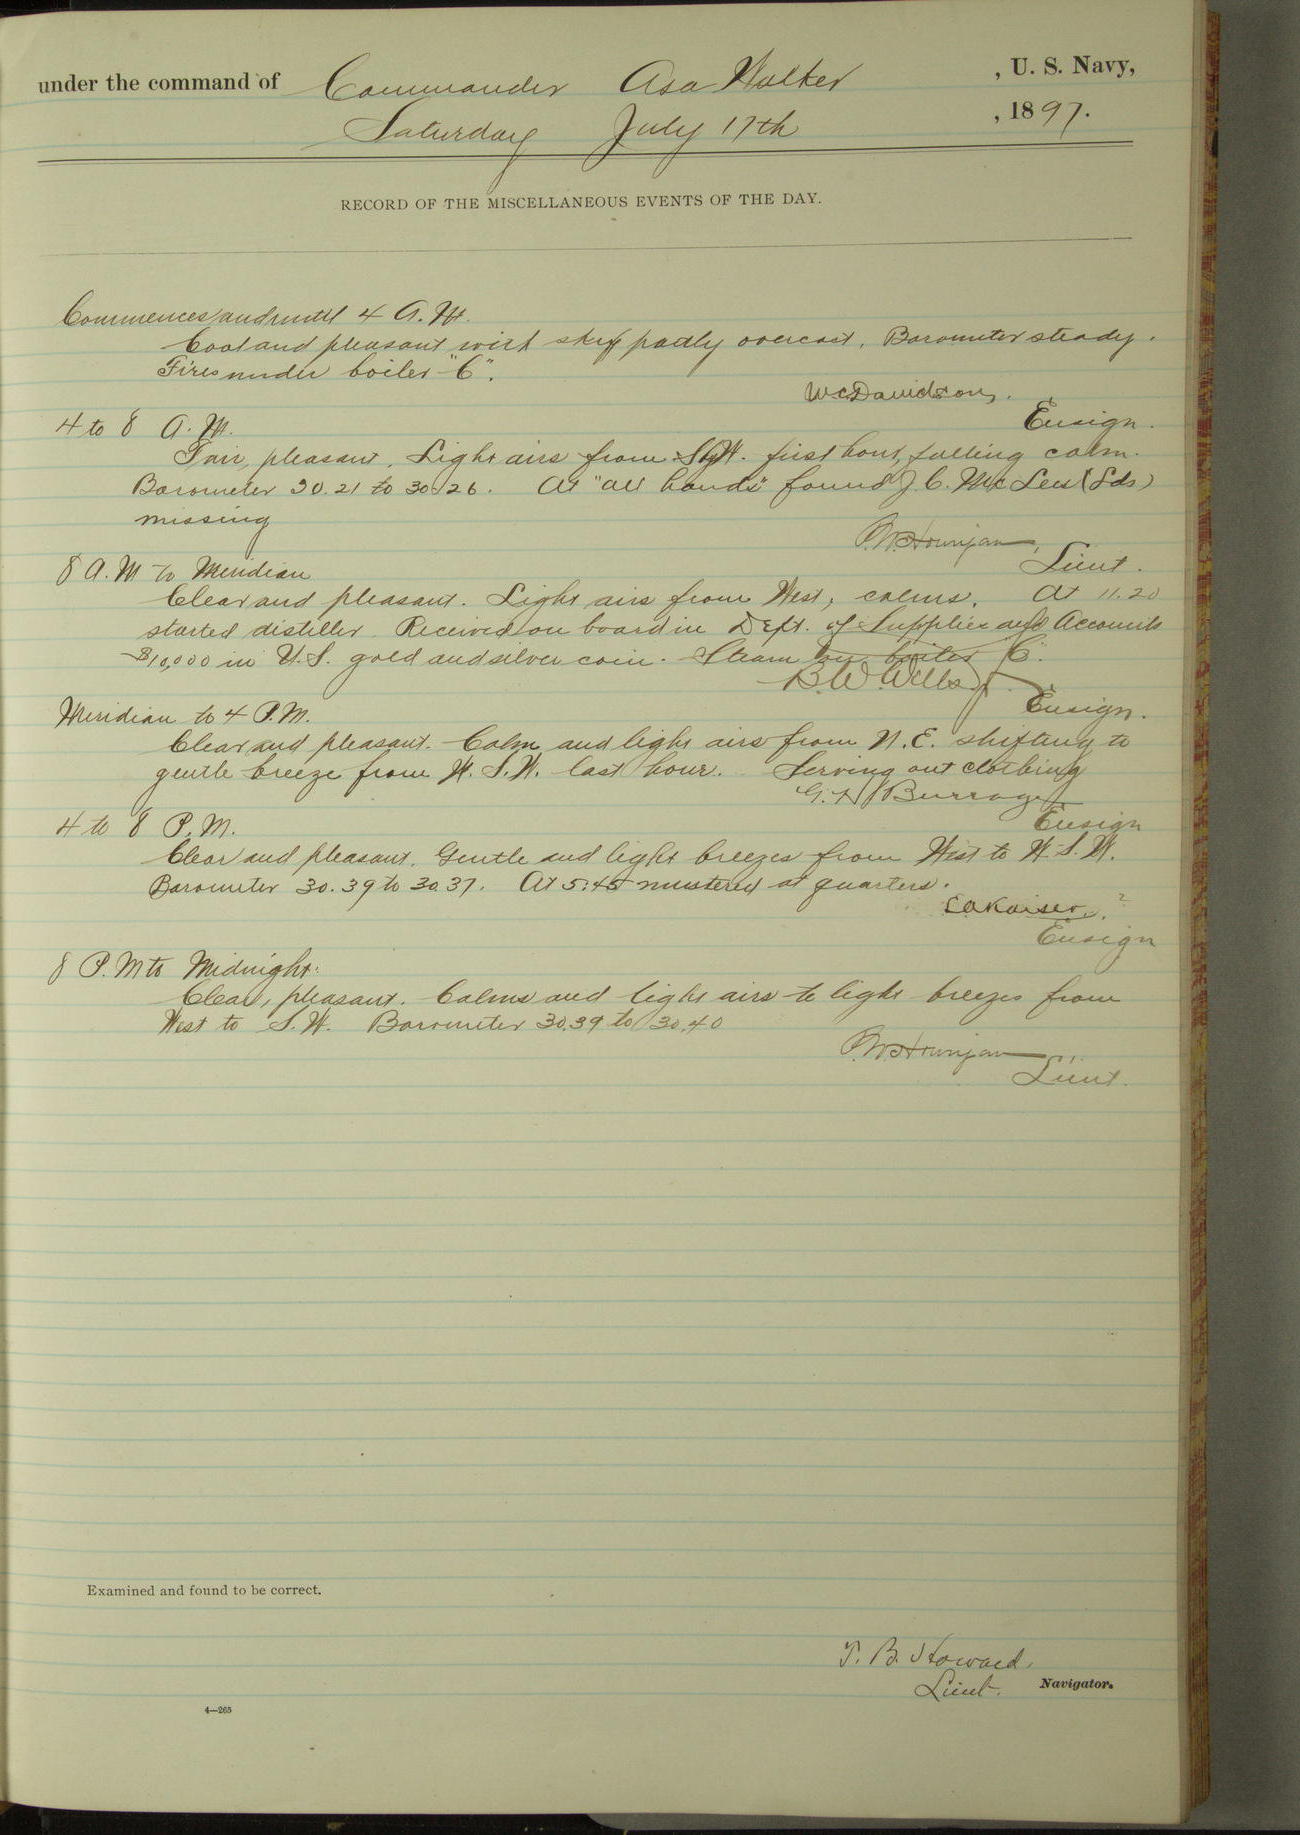 under the command of Commander Asa Walker, U. S. Navy,
Saturday July 17th, 1897.
RECORD OF THE MISCELLANEOUS EVENTS OF THE DAY.
Commences and until 4 A.M.
Cool and pleasant with sky partly overcast. Barometer steady.
Fires under boiler "C".
W.C. Davidson,
Ensign.
4 to 8 A.M.
Fair, pleasant. Light airs from S.W. first hour, falling calm.
Barometer 30.21 to 30.26. At "all hands" found J. C. McLees (Lds)
missing
P.W. Hourigan,
Lieut.
8 A.M to Meridian
Clear and pleasant. Light airs from West, calms. At 11.20
started distiller. Received on board in Dept. of Supplies and Accounts
$10,000 in U.S. gold and silver coin. Steam on boiler C.
B.W. Wells Jr.
Ensign.
Meridian to 4 P.M.
Clear and pleasant. Calm and light airs from N.E. shifting to
gentle breeze from W.S.W. last hour. Serving out clothing
G. H. Burrage
Ensign
4 to 8 P.M.
Clear and pleasant. Gentle and light breezes from West to W.S.W.
Barometer 30.39 to 30.37. At 5:45 mustered at quarters.
L.A. Kaiser,
Ensign
8 P.M to Midnight:
Clear, pleasant. Calms and light airs to light breezes from
West to S.W. Barometer 30.39 to 30.40
P.W. Hourigan,
Lieut.
Examined and found to be correct.
T. B. Howard,
Lieut. Navigator.
4—265